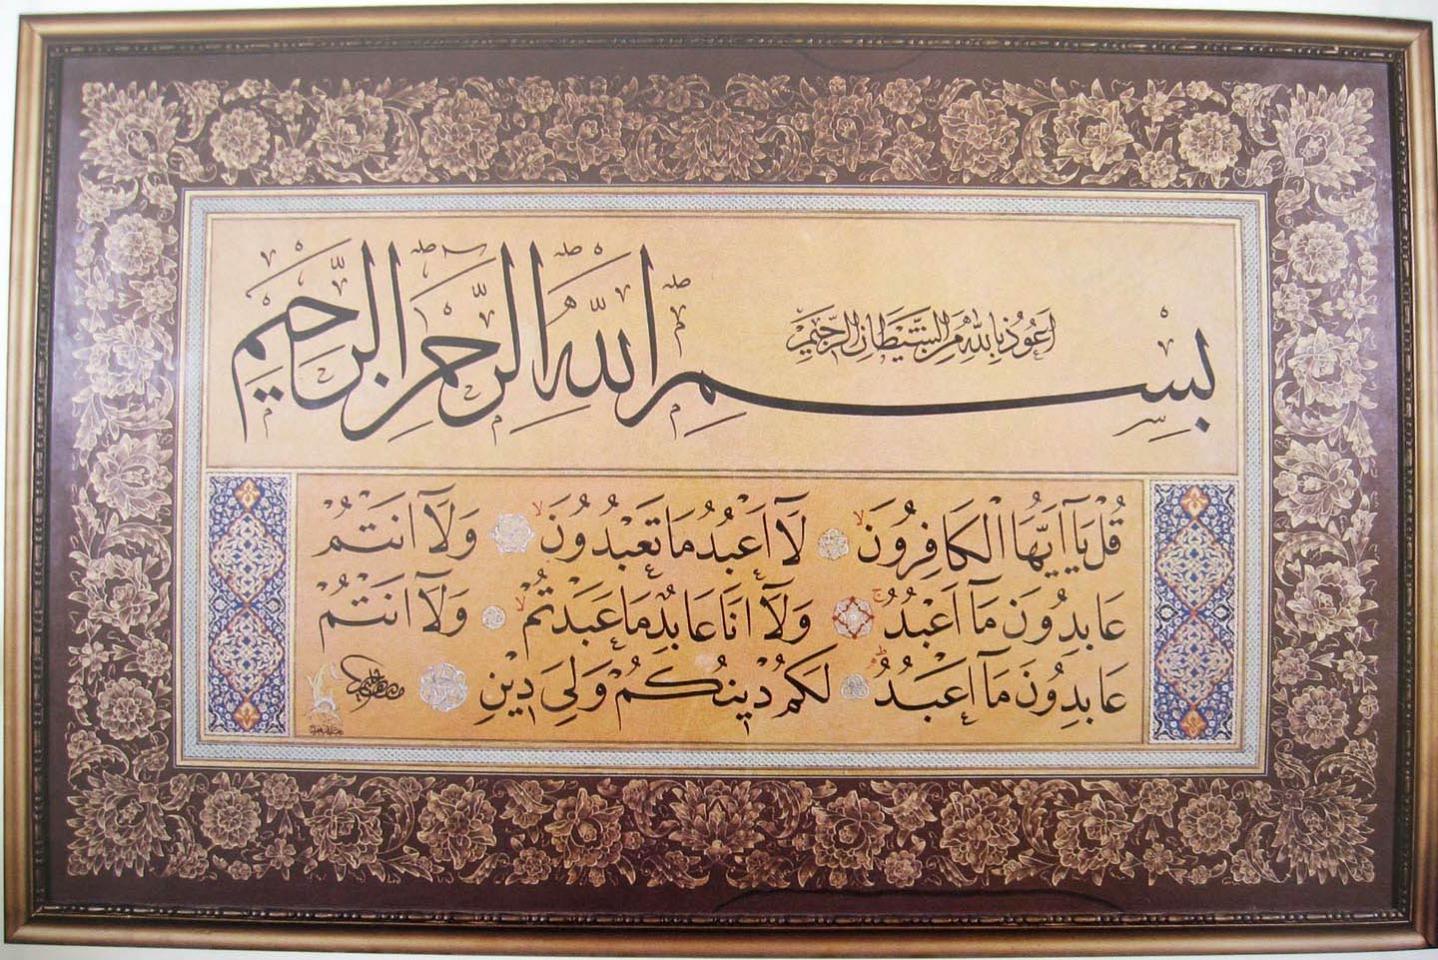 اَعُوذُ بِاللّٰهِ مِنَ الشَّيْطَانِ الرَّجِيمِ
بِسْمِ اللّٰهِ الرَّحْمٰنِ الرَّحِيمِ
قُلْ يَآ اَيُّهَا الْكَافِرُونَ ۙ لَآ اَعْبُدُ مَا تَعْبُدُونَ ۙ وَلَآ اَنْتُمْ
عَابِدُونَ مَآ اَعْبُدُ ۚ وَلَآ اَنَا عَابِدٌ مَا عَبَدْتُمْ ۙ وَلَآ اَنْتُمْ
عَابِدُونَ مَآ اَعْبُدُ ۜ لَكُمْ دِينُكُمْ وَلِيَ دِينِ